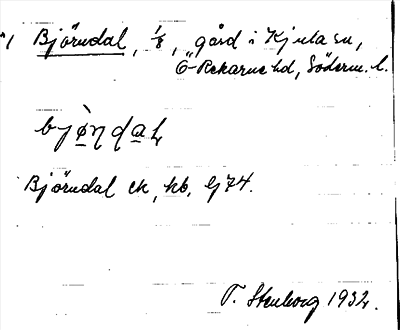 Björndal, 1/8, gård i Kjula sn,
Ö-Rekarne hd, Söderm. l.
bjø̀ɳdaL
Björndal ek, hb, Gj 74.
T. Stenborg 1932.